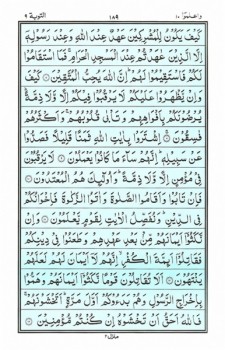 واعلموا ١٠ ١٨٩ التوبة ٩
كَيْفَ يَكُوْنُ لِلْمُشْرِكِيْنَ عَهْدٌ عِنْدَ اللّٰهِ وَعِنْدَ رَسُوْلِهٖٓ
اِلَّا الَّذِيْنَ عٰهَدْتُّمْ عِنْدَ الْمَسْجِدِ الْحَرَامِ ۚ فَمَا اسْتَقَامُوْا
لَكُمْ فَاسْتَقِيْمُوْا لَهُمْ ؕ اِنَّ اللّٰهَ يُحِبُّ الْمُتَّقِيْنَ ۝ كَيْفَ
وَاِنْ يَّظْهَرُوْا عَلَيْكُمْ لَا يَرْقُبُوْا فِيْكُمْ اِلًّا وَّلَا ذِمَّةً ؕ
يُرْضُوْنَكُمْ بِاَفْوَاهِهِمْ وَتَاْبٰى قُلُوْبُهُمْ ۚ وَاَكْثَرُهُمْ
فٰسِقُوْنَ ۝ اِشْتَرَوْا بِاٰيٰتِ اللّٰهِ ثَمَنًا قَلِيْلًا فَصَدُّوْا
عَنْ سَبِيْلِهٖ ؕ اِنَّهُمْ سَآءَ مَا كَانُوْا يَعْمَلُوْنَ ۝ لَا يَرْقُبُوْنَ
فِيْ مُؤْمِنٍ اِلًّا وَّلَا ذِمَّةً ؕ وَاُولٰٓئِكَ هُمُ الْمُعْتَدُوْنَ ۝
فَاِنْ تَابُوْا وَاَقَامُوا الصَّلٰوةَ وَاٰتَوُا الزَّكٰوةَ فَاِخْوَانُكُمْ
فِي الدِّيْنِ ؕ وَنُفَصِّلُ الْاٰيٰتِ لِقَوْمٍ يَّعْلَمُوْنَ ۝ وَاِنْ
نَّكَثُوْٓا اَيْمَانَهُمْ مِّنْۢ بَعْدِ عَهْدِهِمْ وَطَعَنُوْا فِيْ دِيْنِكُمْ
فَقَاتِلُوْٓا اَئِمَّةَ الْكُفْرِ ۙ اِنَّهُمْ لَآ اَيْمَانَ لَهُمْ لَعَلَّهُمْ
يَنْتَهُوْنَ ۝ اَلَا تُقَاتِلُوْنَ قَوْمًا نَّكَثُوْٓا اَيْمَانَهُمْ وَهَمُّوْا
بِاِخْرَاجِ الرَّسُوْلِ وَهُمْ بَدَءُوْكُمْ اَوَّلَ مَرَّةٍ ؕ اَتَخْشَوْنَهُمْ ۚ
فَاللّٰهُ اَحَقُّ اَنْ تَخْشَوْهُ اِنْ كُنْتُمْ مُّؤْمِنِيْنَ ۝
منزل ٢